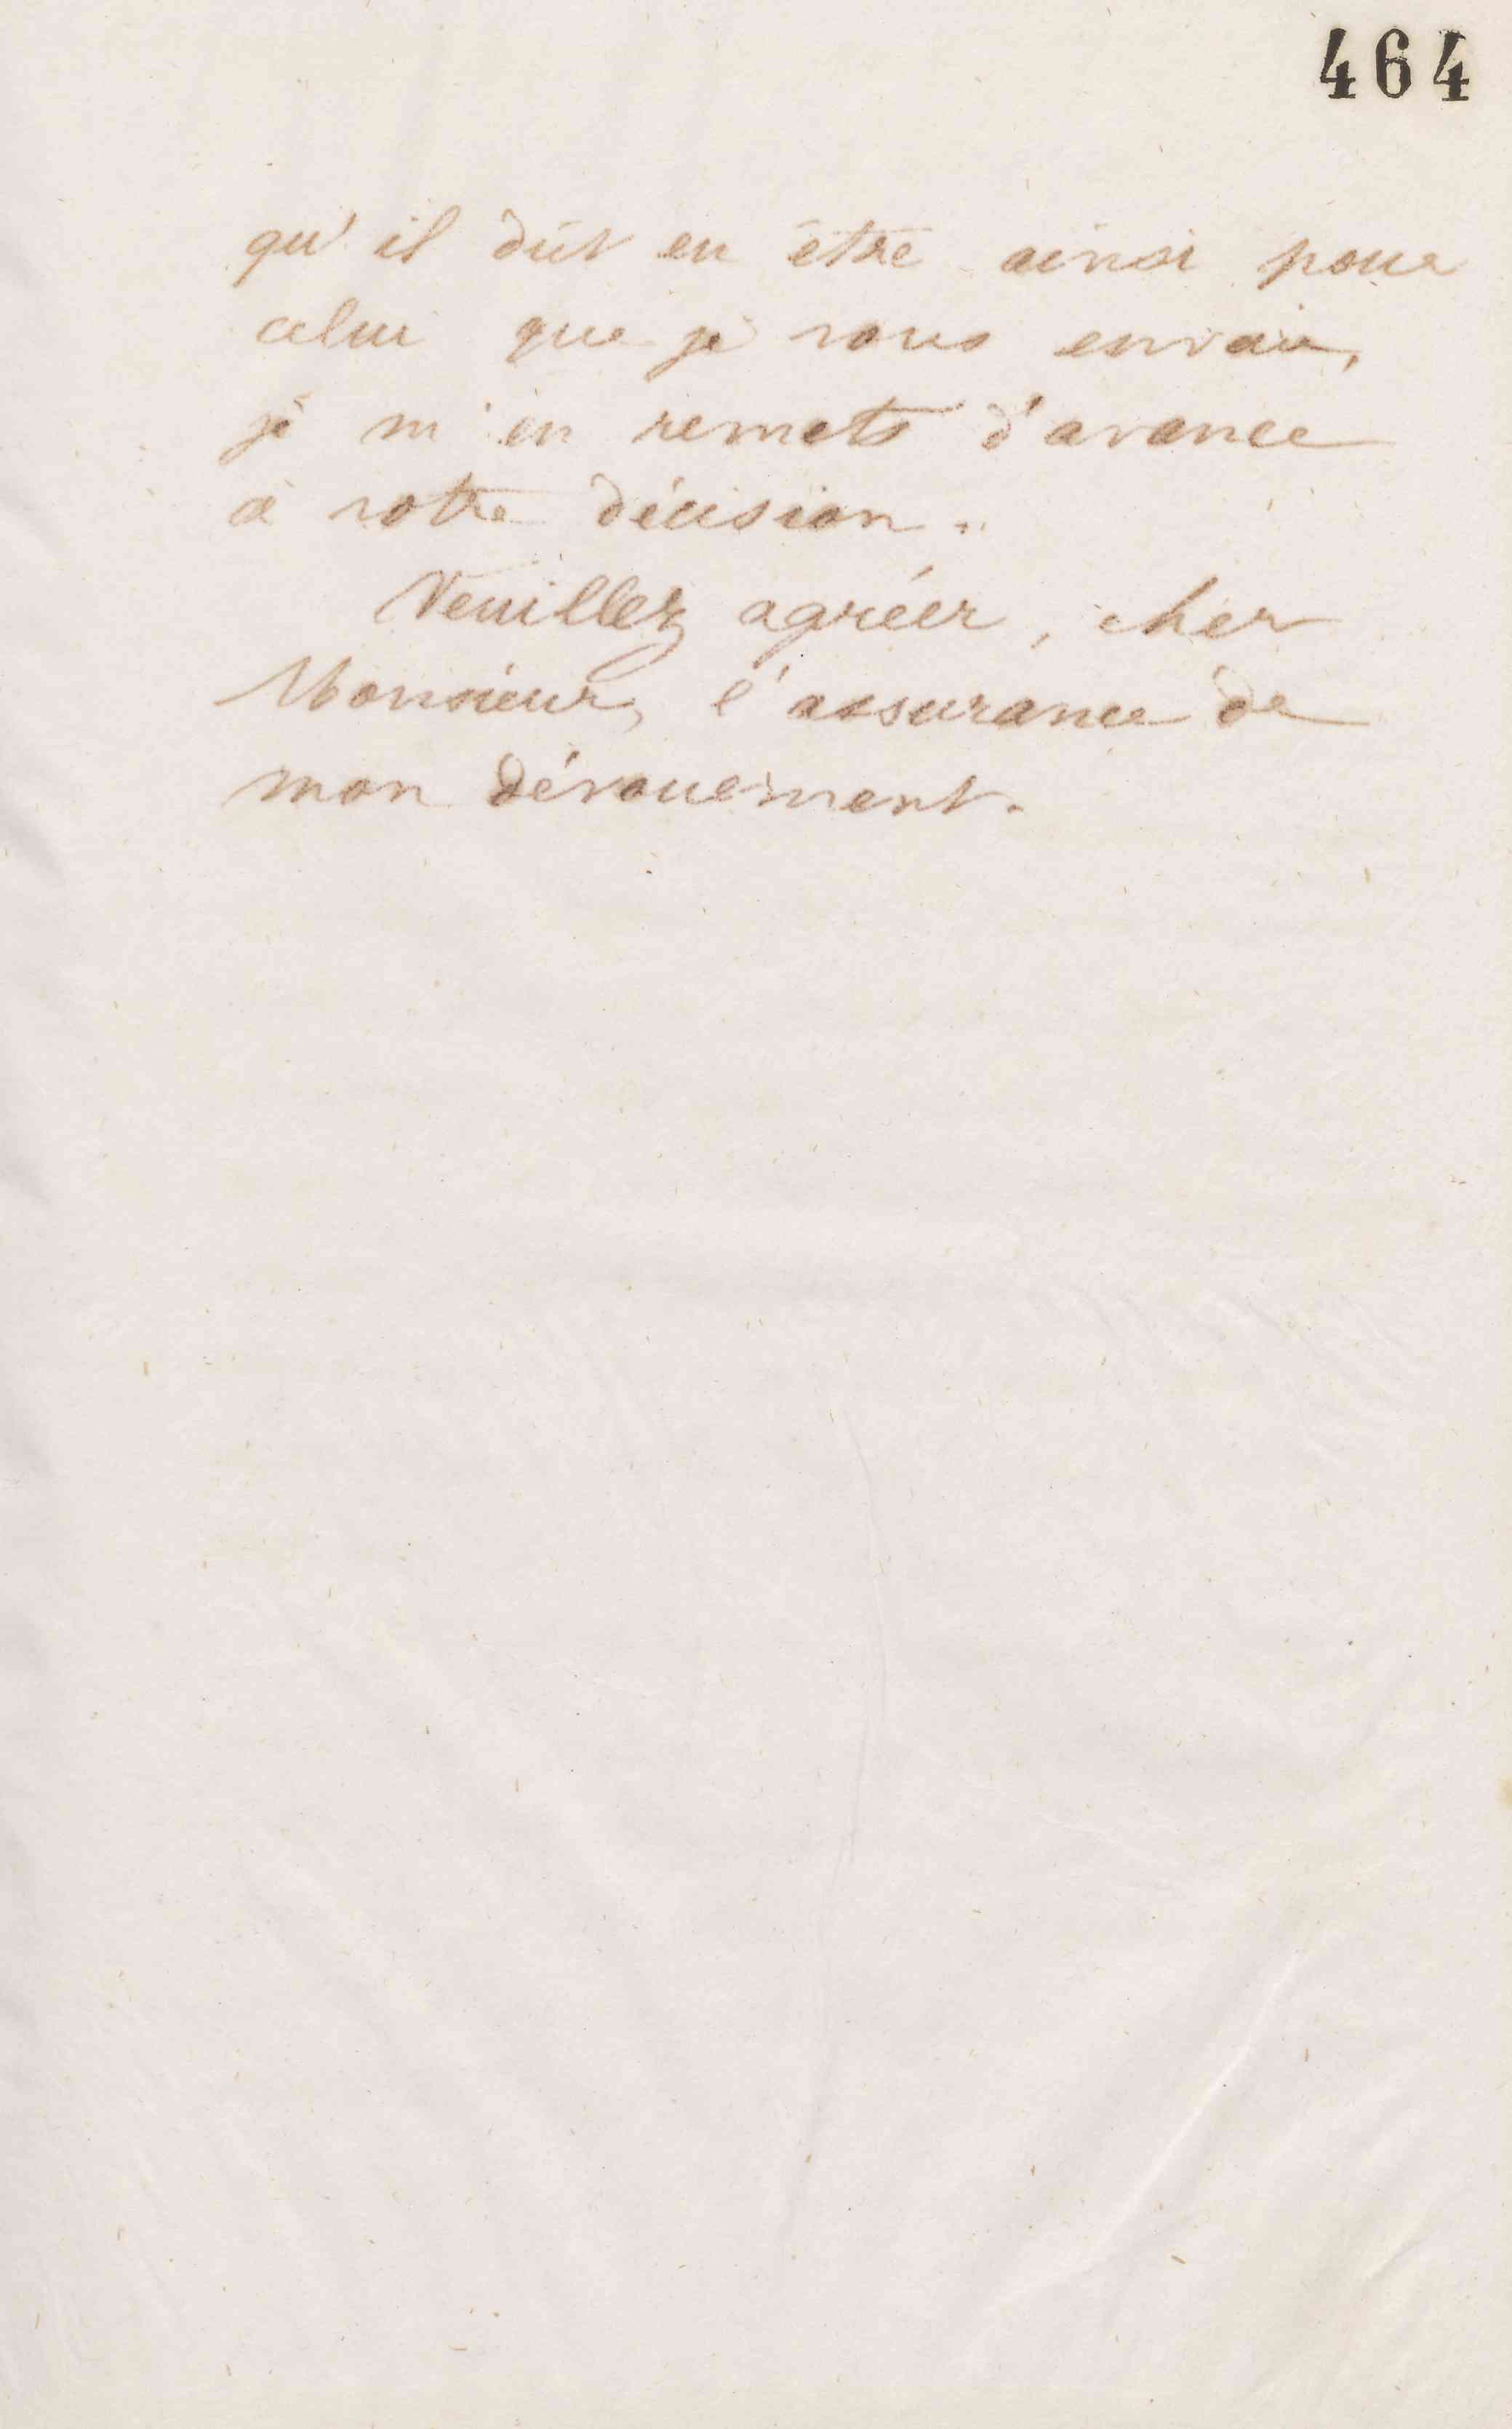 464
qu'il dût en être ainsi pour
celui que je vous envoie,
je m'en remets d'avance
à votre décision.
Veuillez agréer, cher
Monsieur, l'assurance de
mon dévouement.